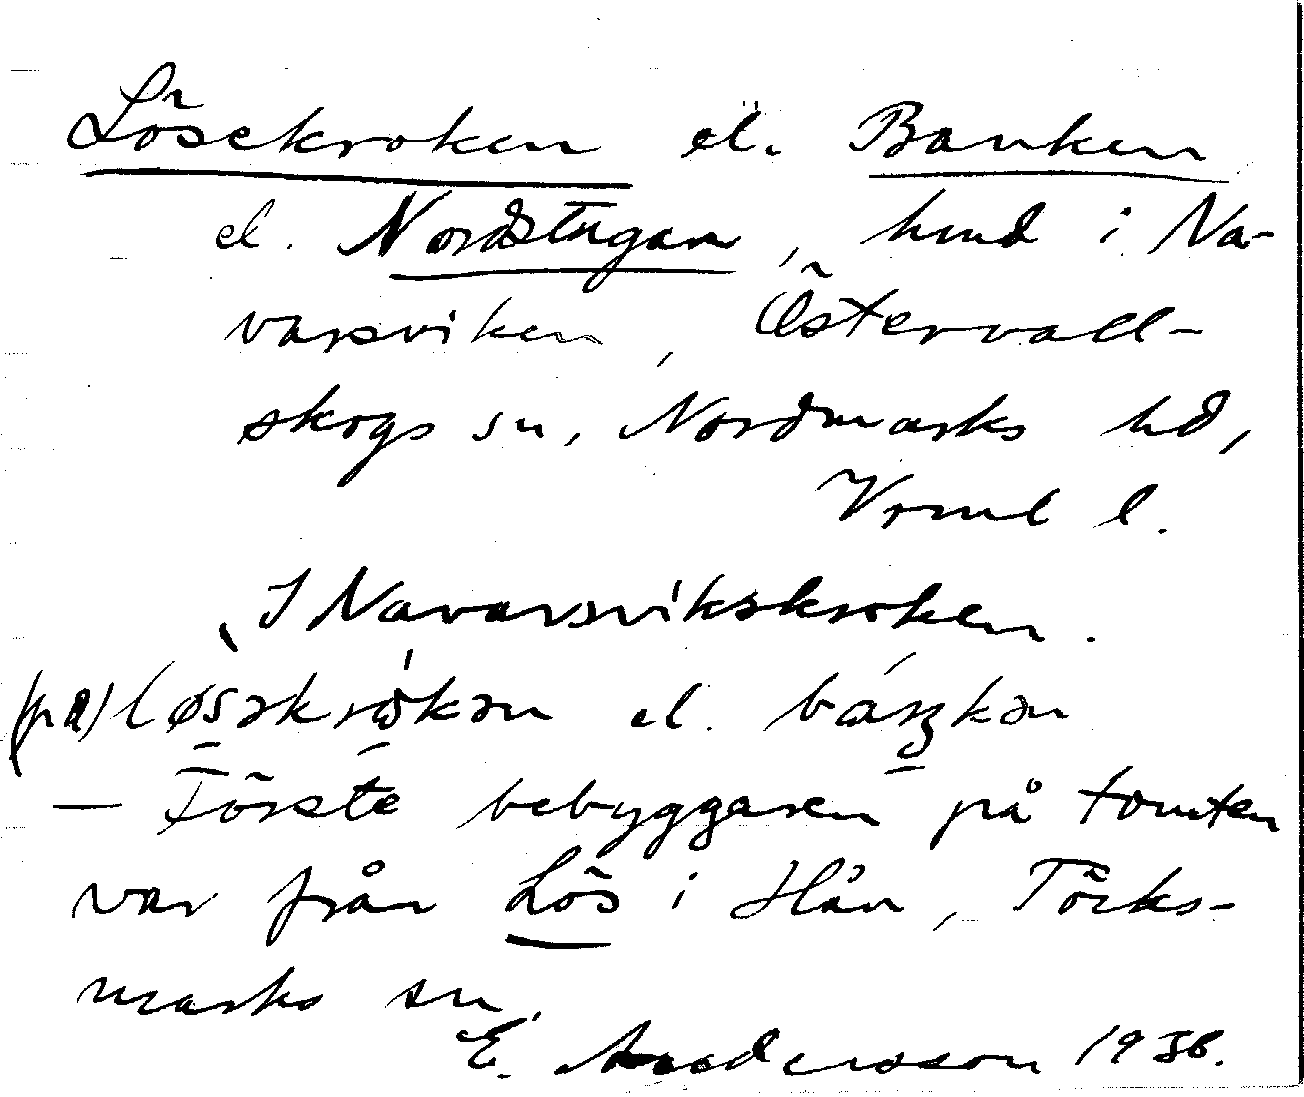 Lösekroken el. Banken
el. Nordstugan, hmd i Na-
varsviken, Östervall-
skogs sn, Nordmarks hd,
Vrml l.
I Navarsvikskroken.
(på) løsəkrókən el. báŋkən
— Förste bebyggaren på tomten
var från Lös i Hån, Töcks-
marks sn.
E. Andersson 1938.